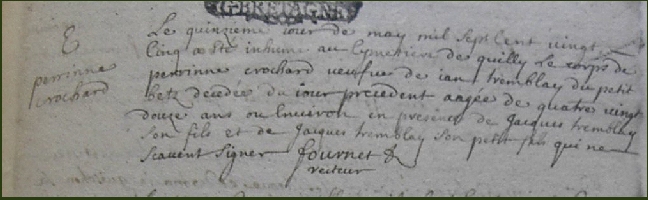 G. BRETAGNE
E
perrinne
crochard
Le quinzieme iour de may mil sept cent vingt
Cinq a este inhumé au cymetiere de quilly Le corps de
perrinne crochard veufve de ian tremblay du petit
betz decedée du iour precedent aagée de quatre vingt
douze ans ou Environ en presence de Jacques tremblay
son fils et de Jacques tremblay son petit fils qui ne
scavent signer fournet
recteur